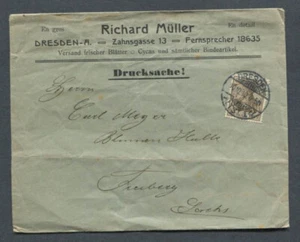 En gros Richard Müller En detail
DRESDEN-A. — Zahnsgasse 13 — Fernsprecher 18635
Versand frischer Blumen — Grosso und sämtlicher Bindeartikel.
Drucksache!
Herrn
Emil Meyer
Blumen Halle
Freiberg
Sachs